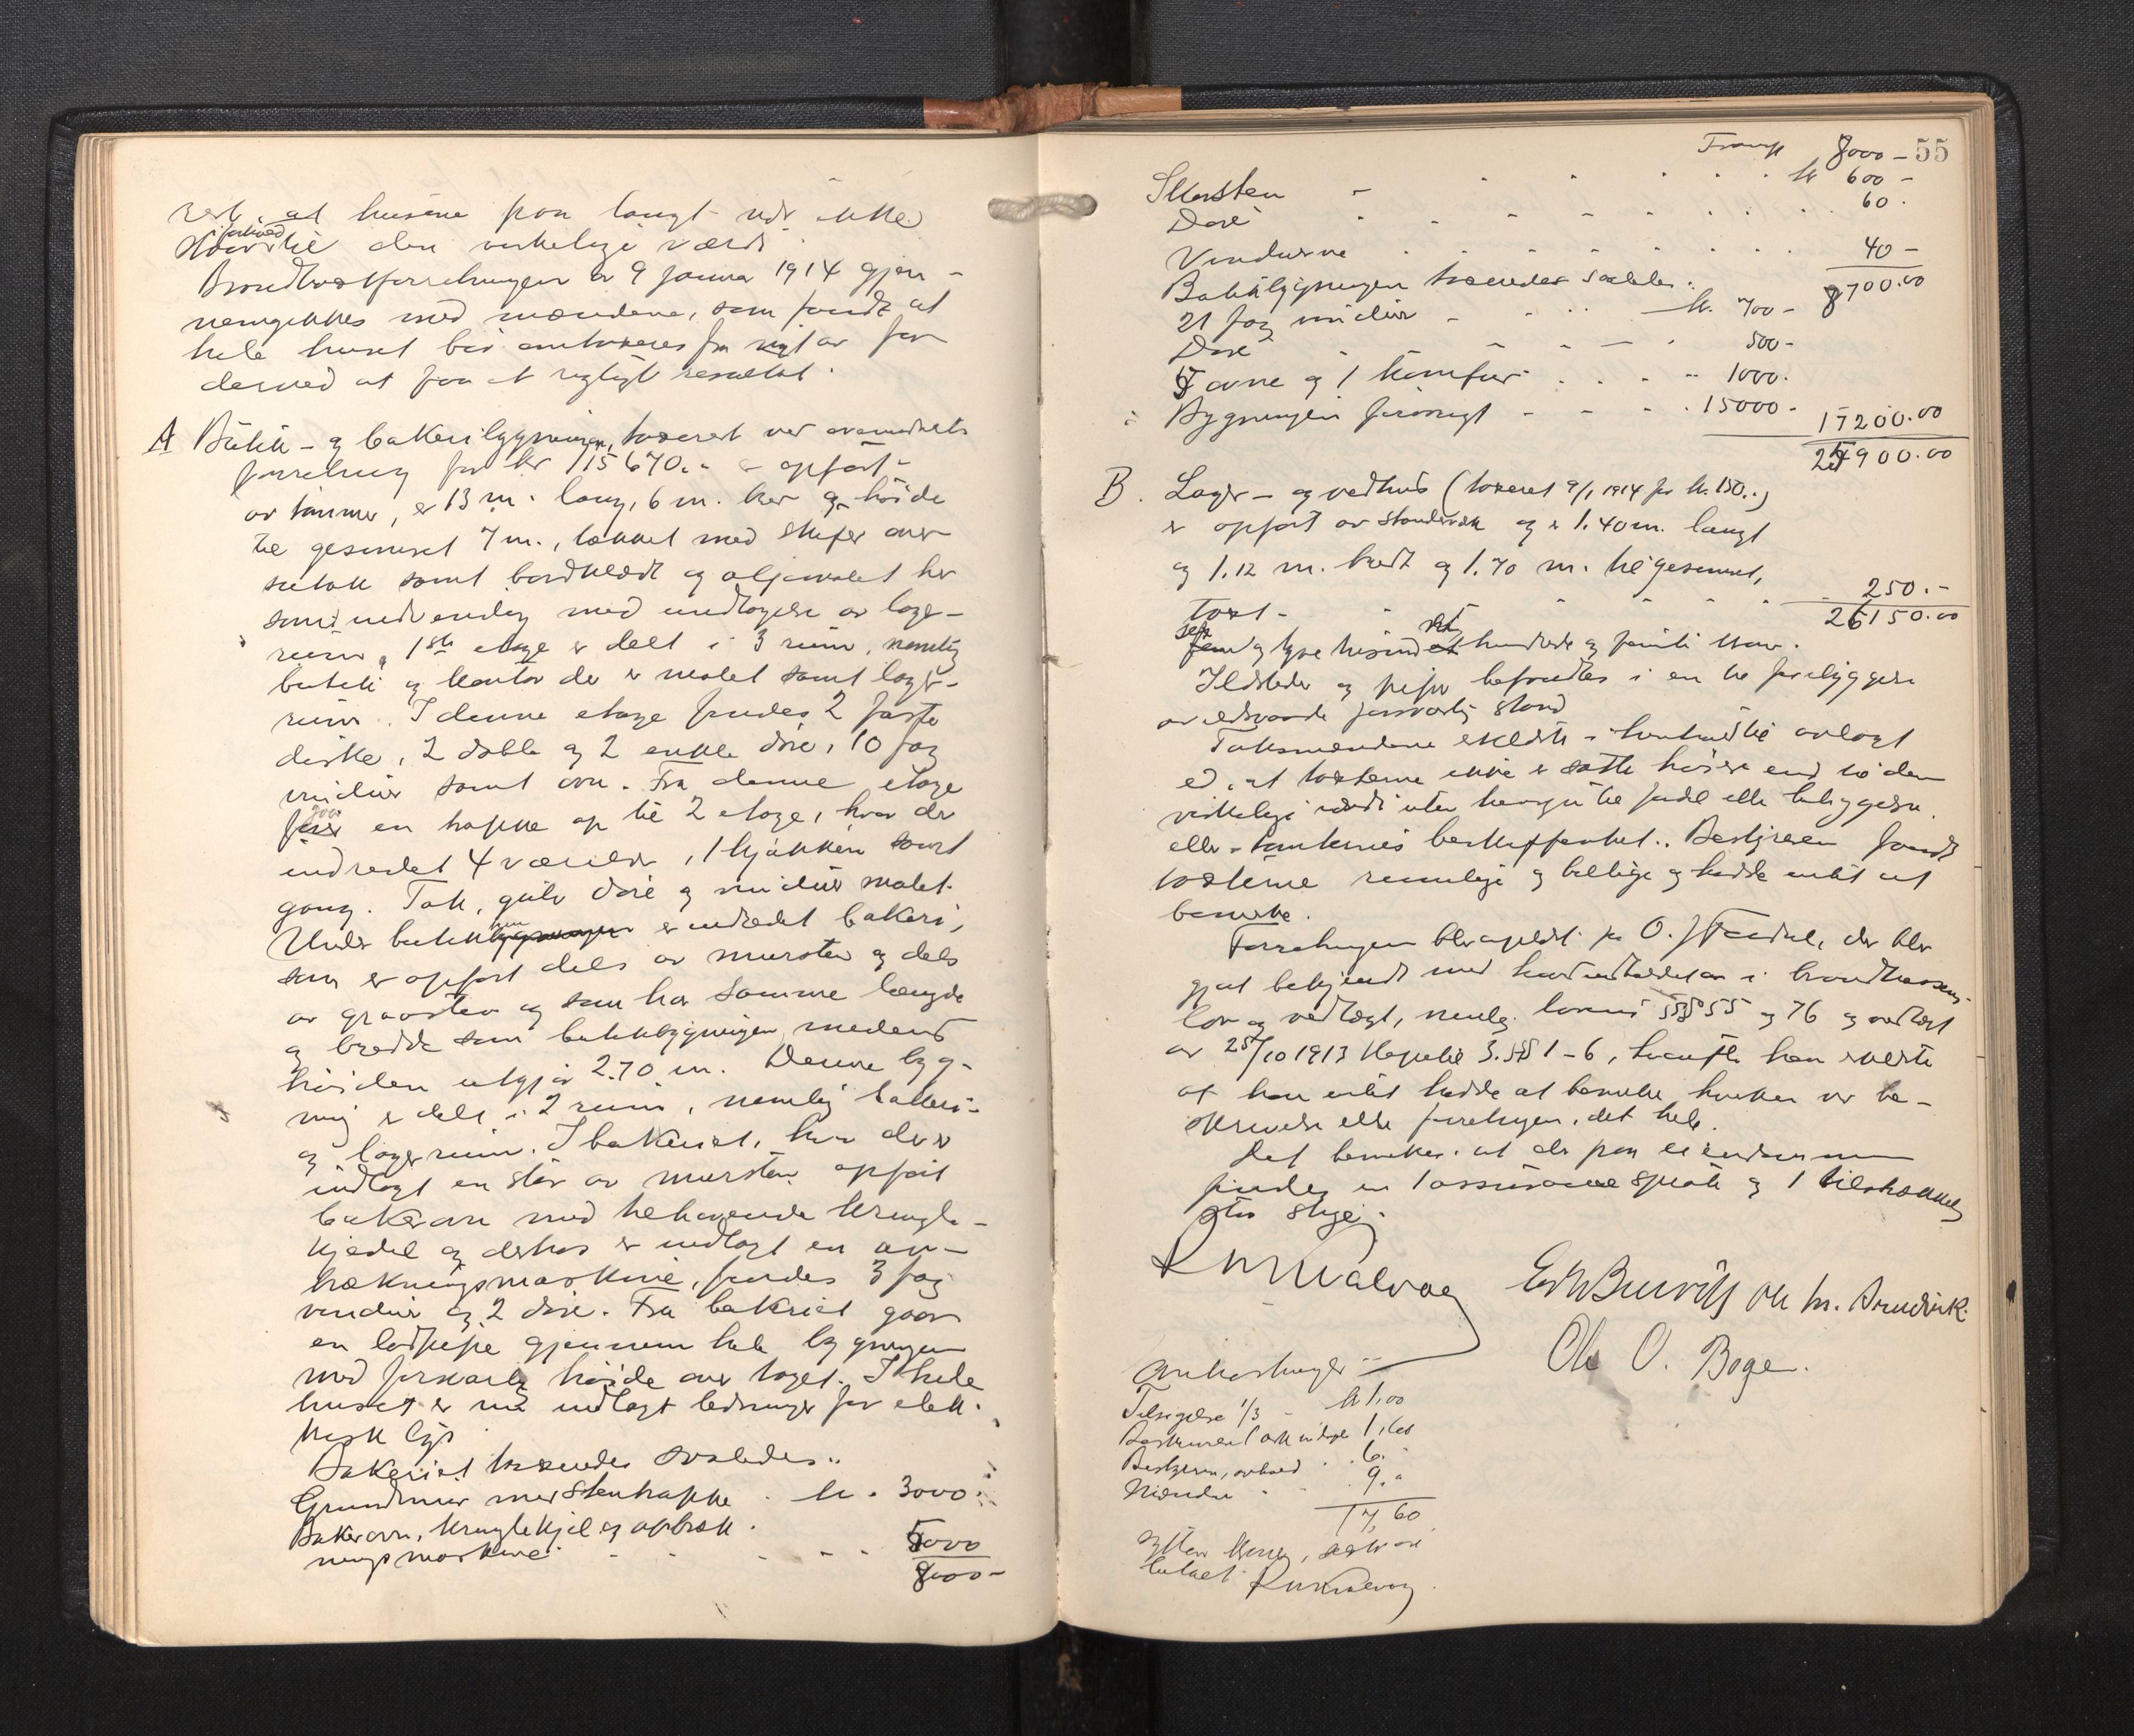 at husene paa langt nær ikke
staar i forhold til den virkelige værdi.
Brandtakstforretningen av 9 januar 1914 gjen-
nemgikkes med mændene, som fandt at
hele huset bør omtakseres fra nyt av for
derved at faa et rigtigt resultat.
A Butik- og bakeribygningen, takseret ved ovennævnte
forretning for kr 15670.- er opført
av tømmer, er 13 m. lang, 6 m. bred og høide
til gesimset 7 m., tækket med skifer over
sutak samt bordklædt og oljemalet
samt indvendig med undtagelse av lager-
rum. 1ste etage er delt i 3 rum, nemlig
butik og kontor der er malet samt lager-
rum. I denne etage findes 2 faste
diske, 2 doble og 2 enkle døre, 10 fag
vinduer samt ovn. Fra denne etage
gaar en trappe op til 2 etage, hvor der
indredet 4 værelser, 1 kjøkken samt
gang. Tak, gulv døre og vinduer malet.
Under butikken er indredet bakeri,
som er opført dels av mursten og dels
av graasten og som har samme længde
og bredde som butikbygningen, medens
høiden utgjør 2.70 m. Denne byg-
ning er delt i 2 rum, nemlig bakeri-
og lagerrum. I bakeriet, hvor der er
indlagt en stor av mursten opført
bakerovn med tilhørende kringle-
kjedel og derhos er indlagt en op-
trækningsmaskine, findes 3 fag
vinduer og 2 døre. Fra bakeriet gaar
en lodpipe gjennem hele bygningen
med forsvarlig høide over taget. I hele
huset er nu indlagt ledninger for elek-
trisk lys.
Bakeriet takseredes saaledes:
Grundmur med stentrappe . kr. 3000.
Bakerovn, kringlekjel og optræk-
ningsmaskine - - - 5000
8000-
55
Transp 8000-
Skorsten - - - kr 600-
Døre - - - 60.
Vinduerne - - - 40-
8700.00
Butikbygningen takseredes saaledes:
21 fag vinduer - - kr. 700-
Døre - - - 500-
5 ovne og 1 komfur - - - 1000.
Bygningen forøvrigt - - - 15000- 17200.00
25900.00
B. Lager- og vedhus (takseret 9/1 1914 for kr. 150.-)
er opført av standerværk og er 1.40 m. langt
og 1.12 m. bredt og 1.70 m. til gesimset,
takst - - - 250.-
26150.00
seks og tyve tusind et hundrede og femti kroner.
Ildsteder og piper befandtes i en til forebyggelse
av ildsvaade forsvarlig stand
Takstmændene erklærte i henhold til avlagt
ed, at taksterne ikke er satte høiere end til den
virkelige værdi uten hensyn til fordel eller beliggenhet
eller tomternes beskaffenhet. Bestyreren fandt
taksterne rimelige og billige og hadde intet at
bemerke.
Forretningen blev oplæst for O. J., der blev
gjort bekjendt med hovedindholdet av i brandkassens
lov og vedtægt, nemlig lovens §§ 55 og 76 og vedtægt
av 25/10 1913 kapitel 3. §§ 1-6, hvorefter han erklærte
at han intet hadde at bemerke hverken ved be-
skrivelse eller forretningen, det hele.
Det bemerkes, at der paa eiendommen
findes en 1 assuranse sprøite og 1 tilstrækkelig
stor stige.
Ch O. Boge.
Omkostninger:
Tilsigelse 1/3 - kr 1.00
1,60
Bestyreren, arbeid . . 6.-
Mændene - - 9.-
17,60
sytten kroner,
betalt.